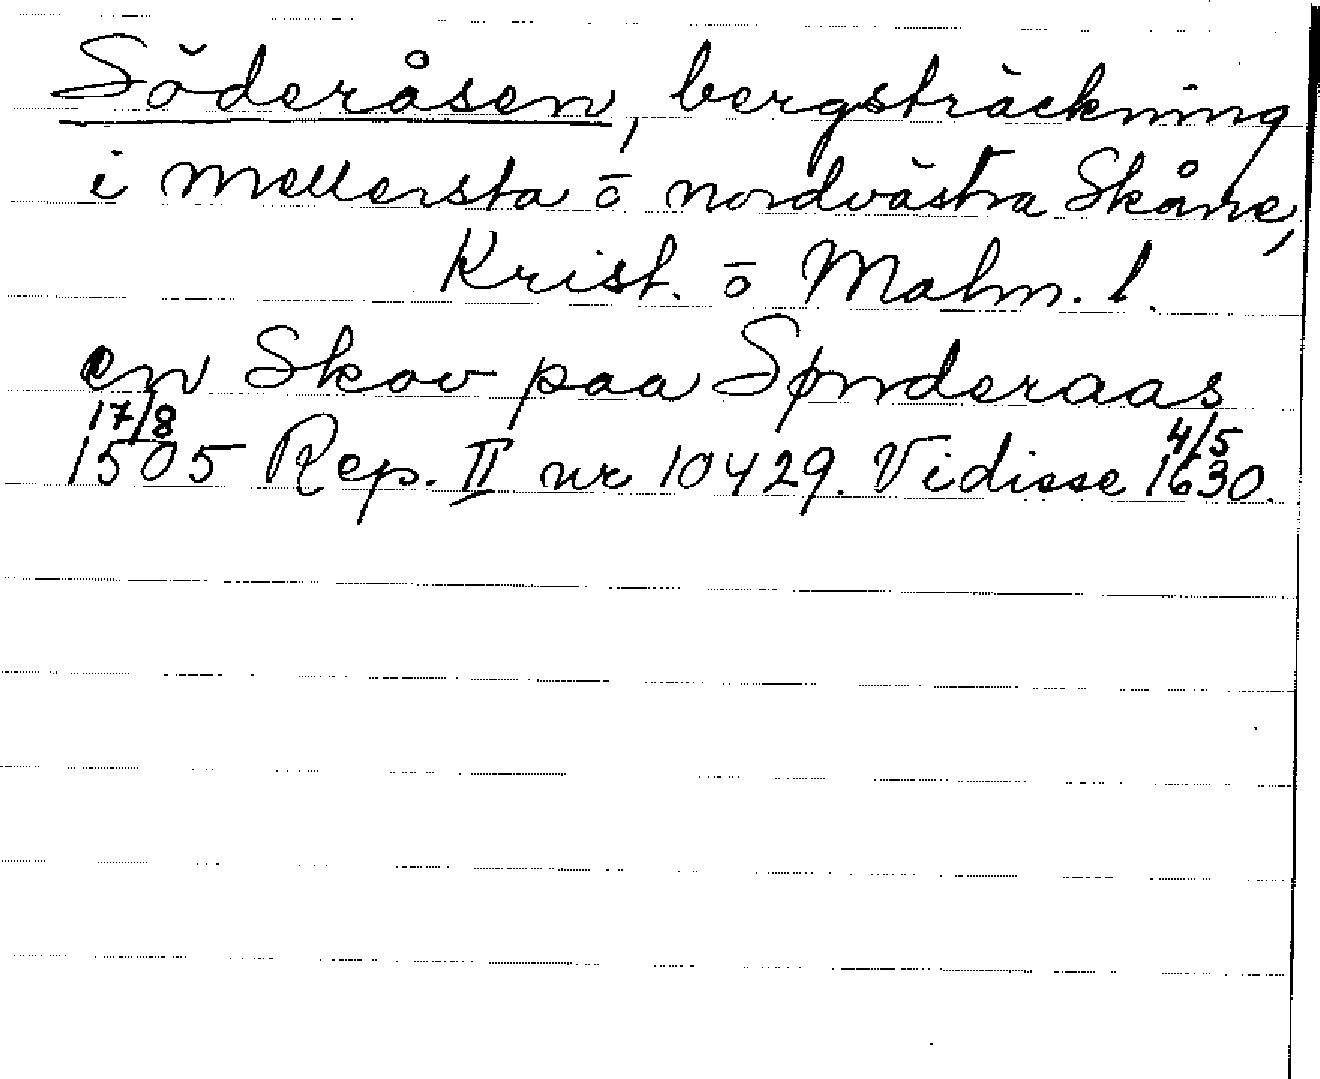 Söderåsen, bergsträckning
i mellersta o̅ nordvästra Skåne,
Krist. o̅ Malm. l.
en Skov paa Sønderaas
17/8 1505 Rep. II nr 10429. Vidisse 4/5 1630.